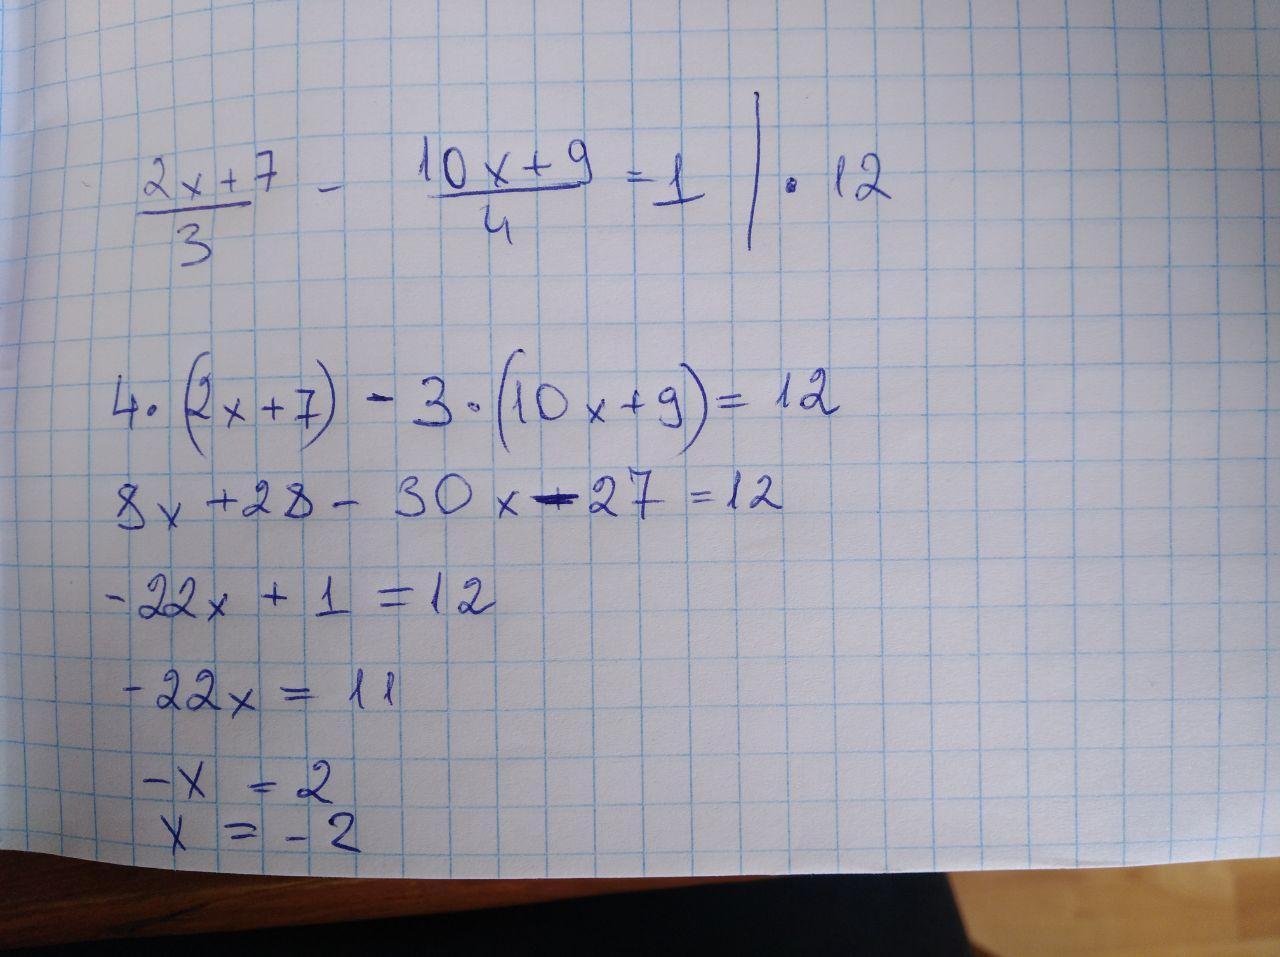 (2x+7)/3 - (10x+9)/4 = 1 | · 12
4·(2x+7) - 3·(10x+9) = 12
8x +28 - 30x - 27 = 12
-22x + 1 = 12
-22x = 11
-x = 2
x = -2